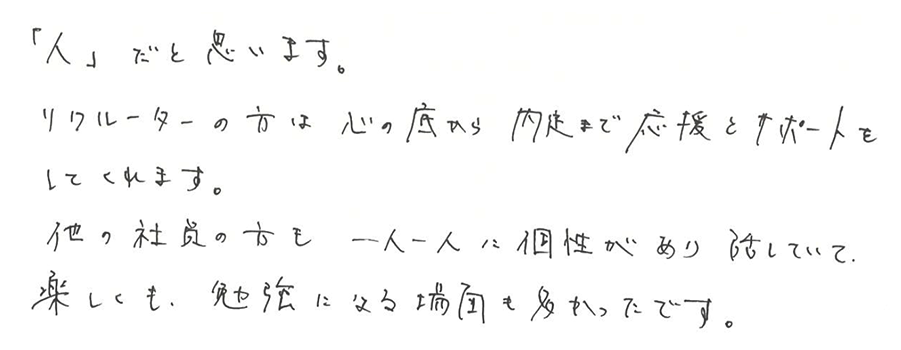 「人」だと思います。
リクルーターの方は 心の底から 内定まで 応援とサポートを
してくれます。
他の社員の方も 一人一人に個性があり 話していて、
楽しくも、勉強になる場面も多かったです。